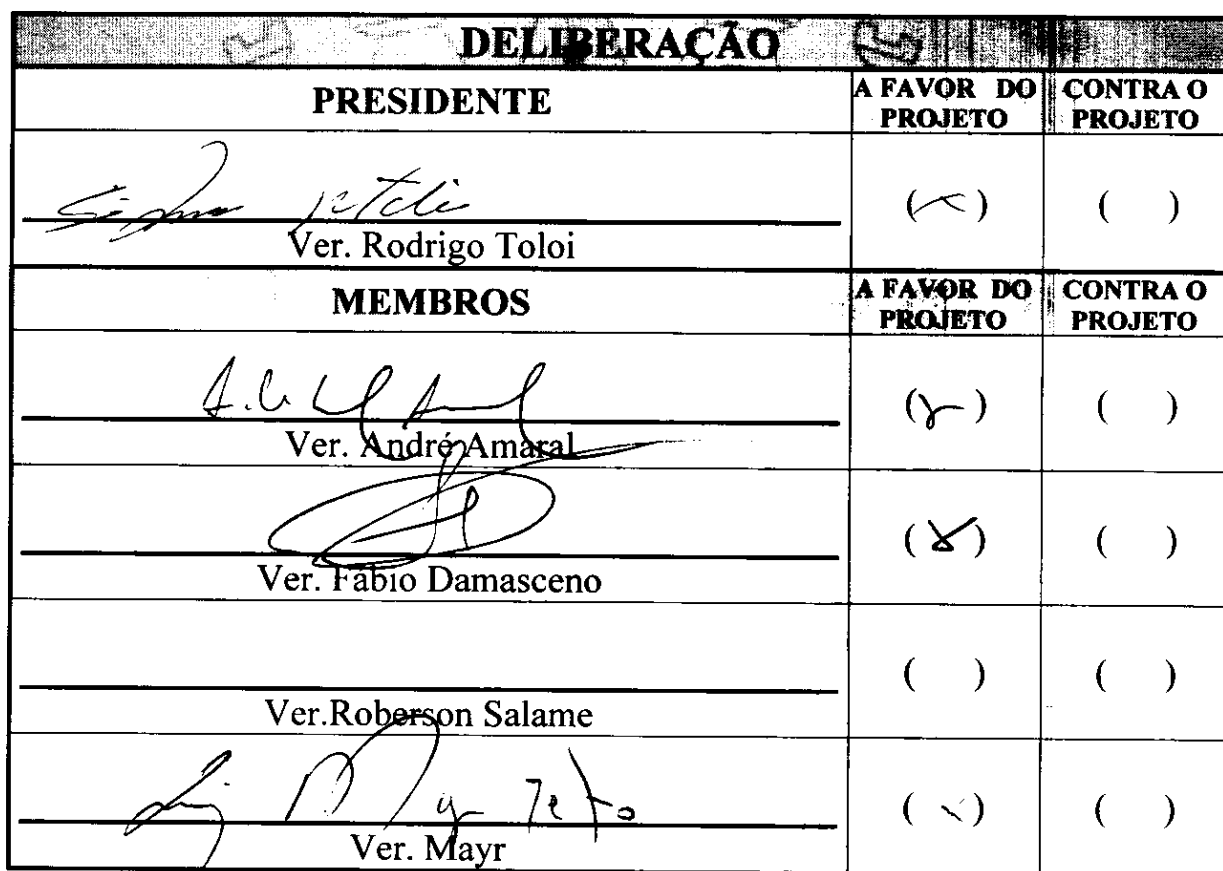 DELIBERAÇÃO
PRESIDENTE
A FAVOR DO
PROJETO
CONTRA O
PROJETO
( ) ( )
Ver. Rodrigo Toloi
MEMBROS
A FAVOR DO
PROJETO
CONTRA O
PROJETO
( ) ( )
Ver. André Amaral
( ) ( )
Ver. Fábio Damasceno
( ) ( )
Ver.Roberson Salame
( ) ( )
Ver. Mayr